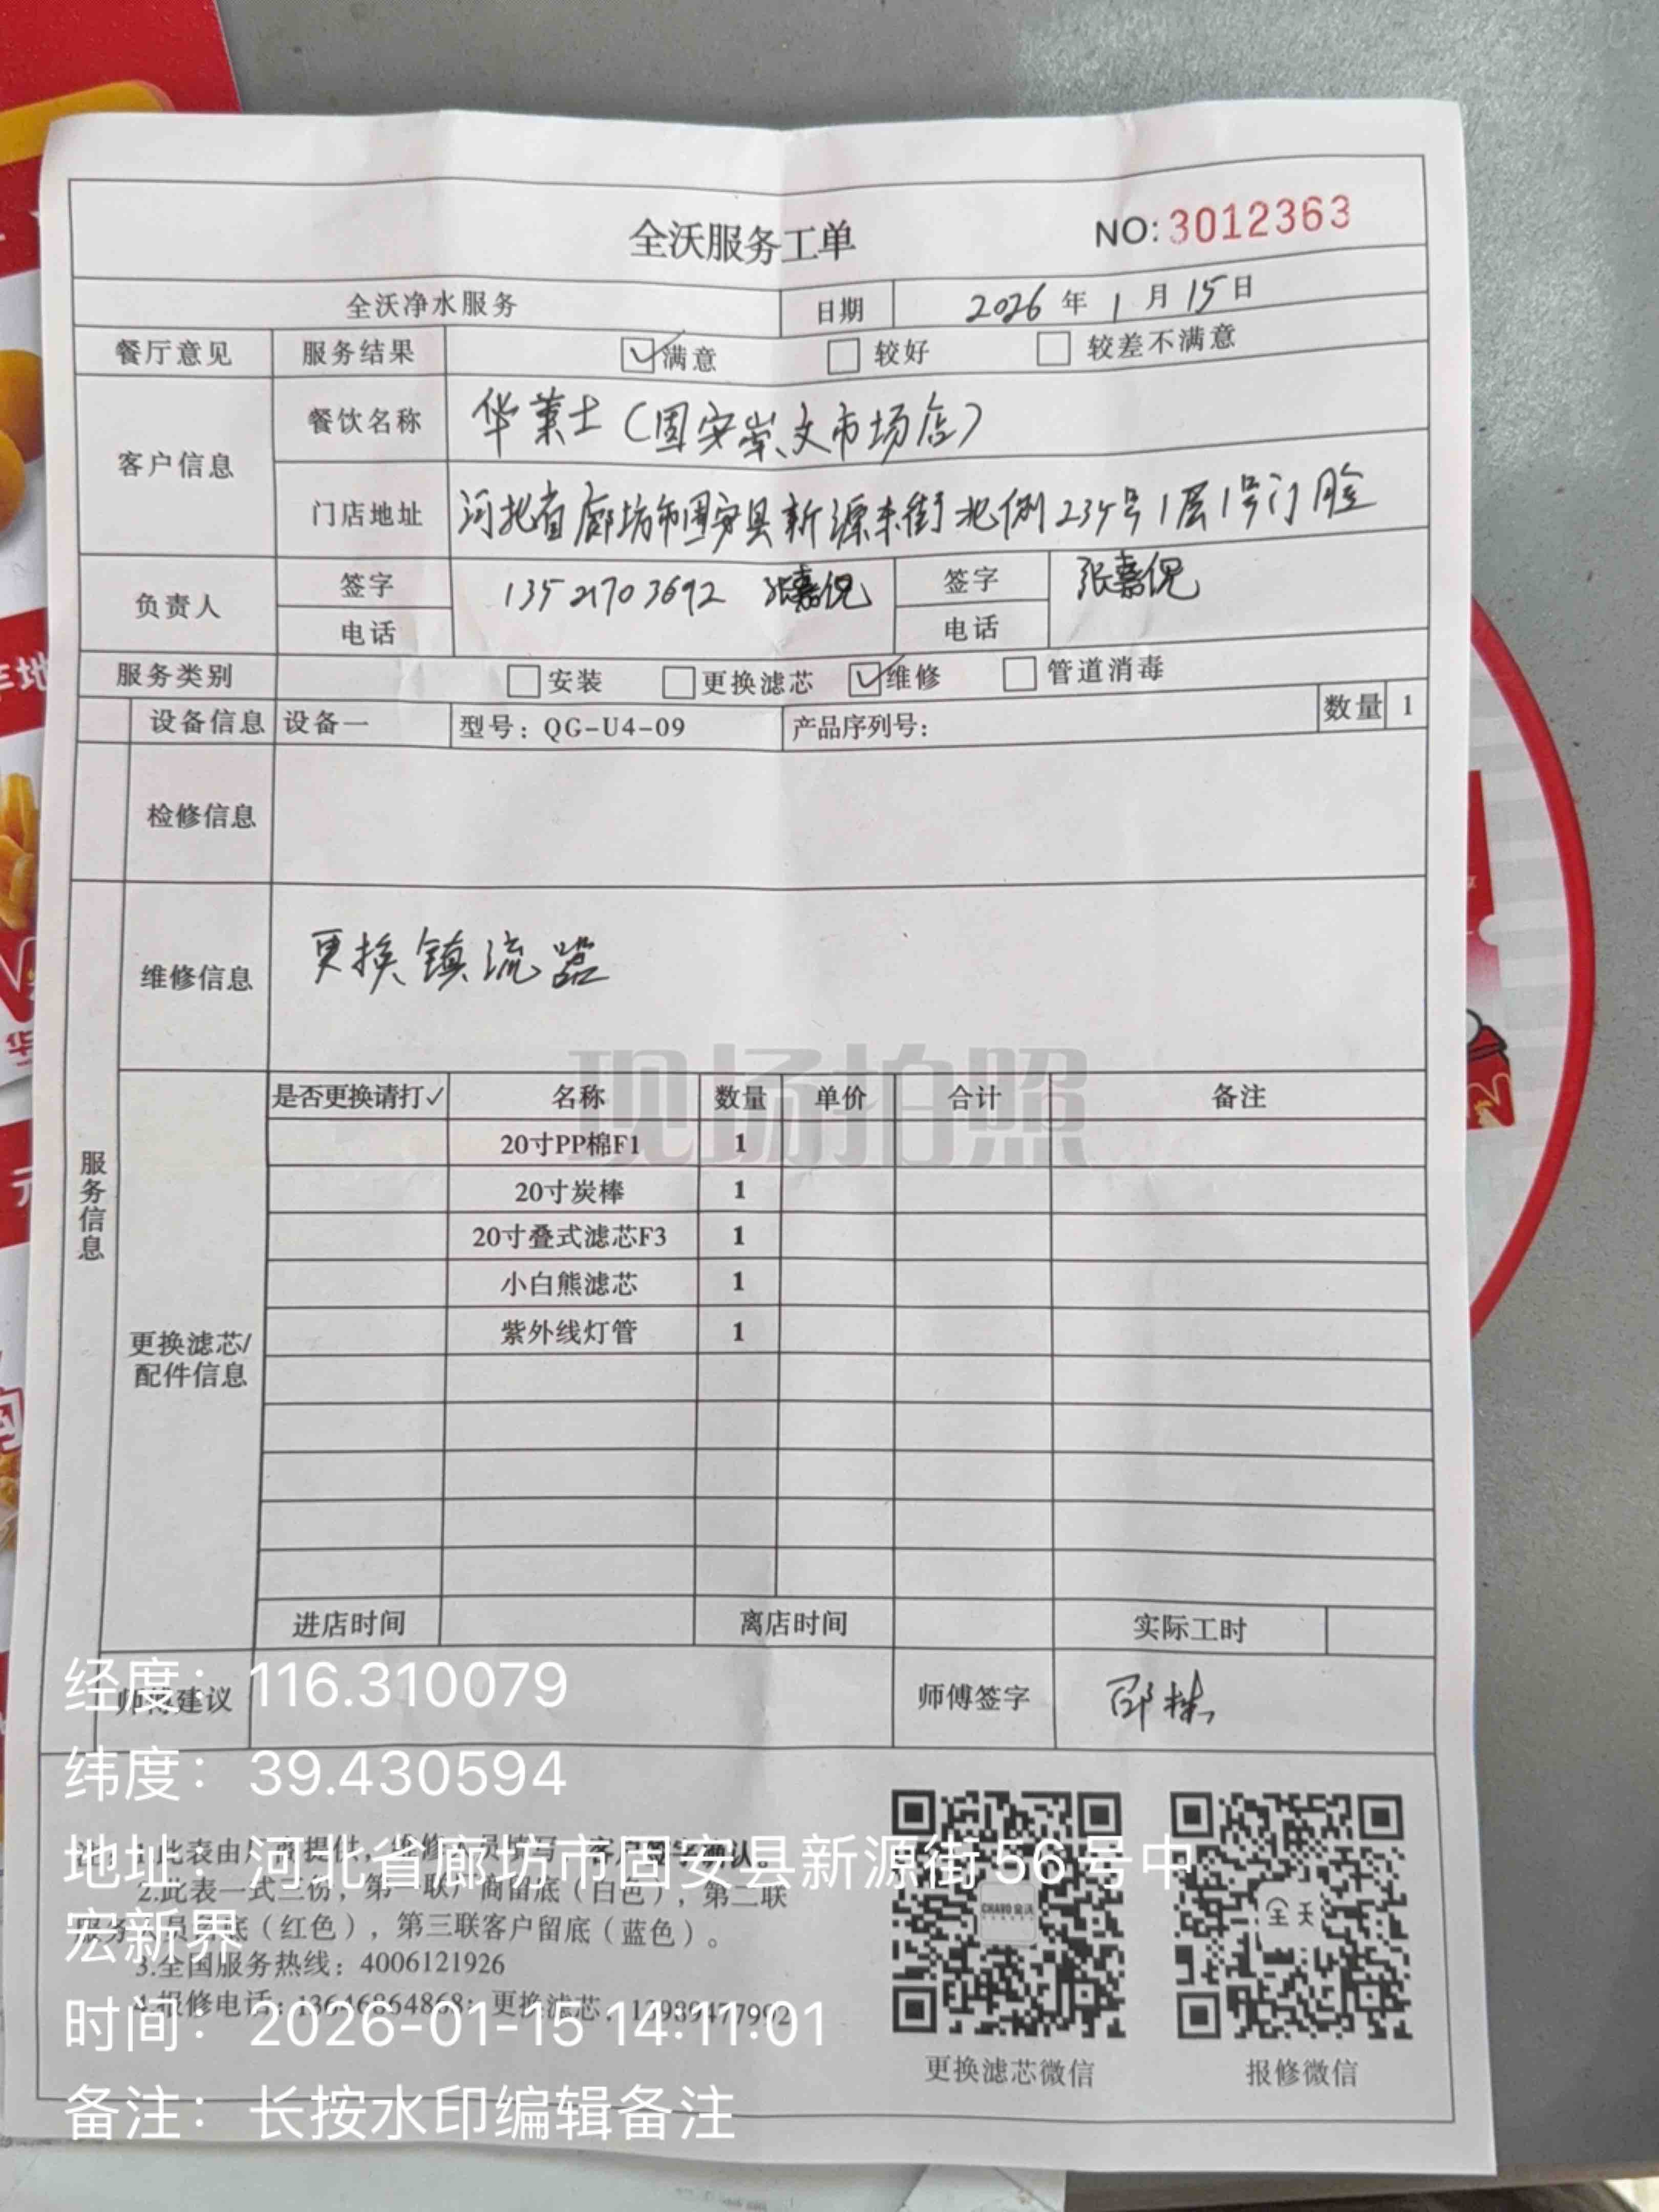 全沃服务工单
NO:3012363
全沃净水服务 日期 2026年1月15日
餐厅意见 服务结果 满意 较好 较差不满意
客户信息 餐饮名称 华莱士(固安崇文市场店)
门店地址 河北省廊坊市固安县新源东街北侧234号1层1号门脸
负责人 签字 13521703692 张嘉倪 签字 张嘉倪
电话 电话
服务类别 安装 更换滤芯 维修 管道消毒
设备信息 设备一 型号:QG-U4-09 产品序列号: 数量 1
检修信息
维修信息 更换镇流器
现场拍照
服务信息
更换滤芯/
配件信息
是否更换请打✓ 名称 数量 单价 合计 备注
20寸PP棉F1 1
20寸炭棒 1
20寸叠式滤芯F3 1
小白熊滤芯 1
紫外线灯管 1
进店时间 离店时间 实际工时
师傅建议 师傅签字 邵
经度:116.310079
纬度:39.430594
地址:河北省廊坊市固安县新源街56号中
宏新界
时间:2026-01-15 14:11:01
备注:长按水印编辑备注
1.此表由 提供,维修人员填写,客户签字确认。
2.此表一式三份,第一联厂商留底(白色),第二联
服务人员留底(红色),第三联客户留底(蓝色)。
3.全国服务热线:4006121926
4.报修电话:13646864868;更换滤芯:13989477992
CHABO 全沃
全天
更换滤芯微信
报修微信